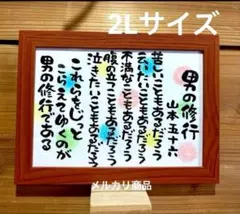 2Lサイズ
男の修行
山本五十六
苦しいこともあるだろう
云いたいこともあるだろう
不満なこともあるだろう
腹の立つこともあるだろう
泣きたいこともあるだろう
これらをじっと
こらえてゆくのが
男の修行である
メルカリ商品